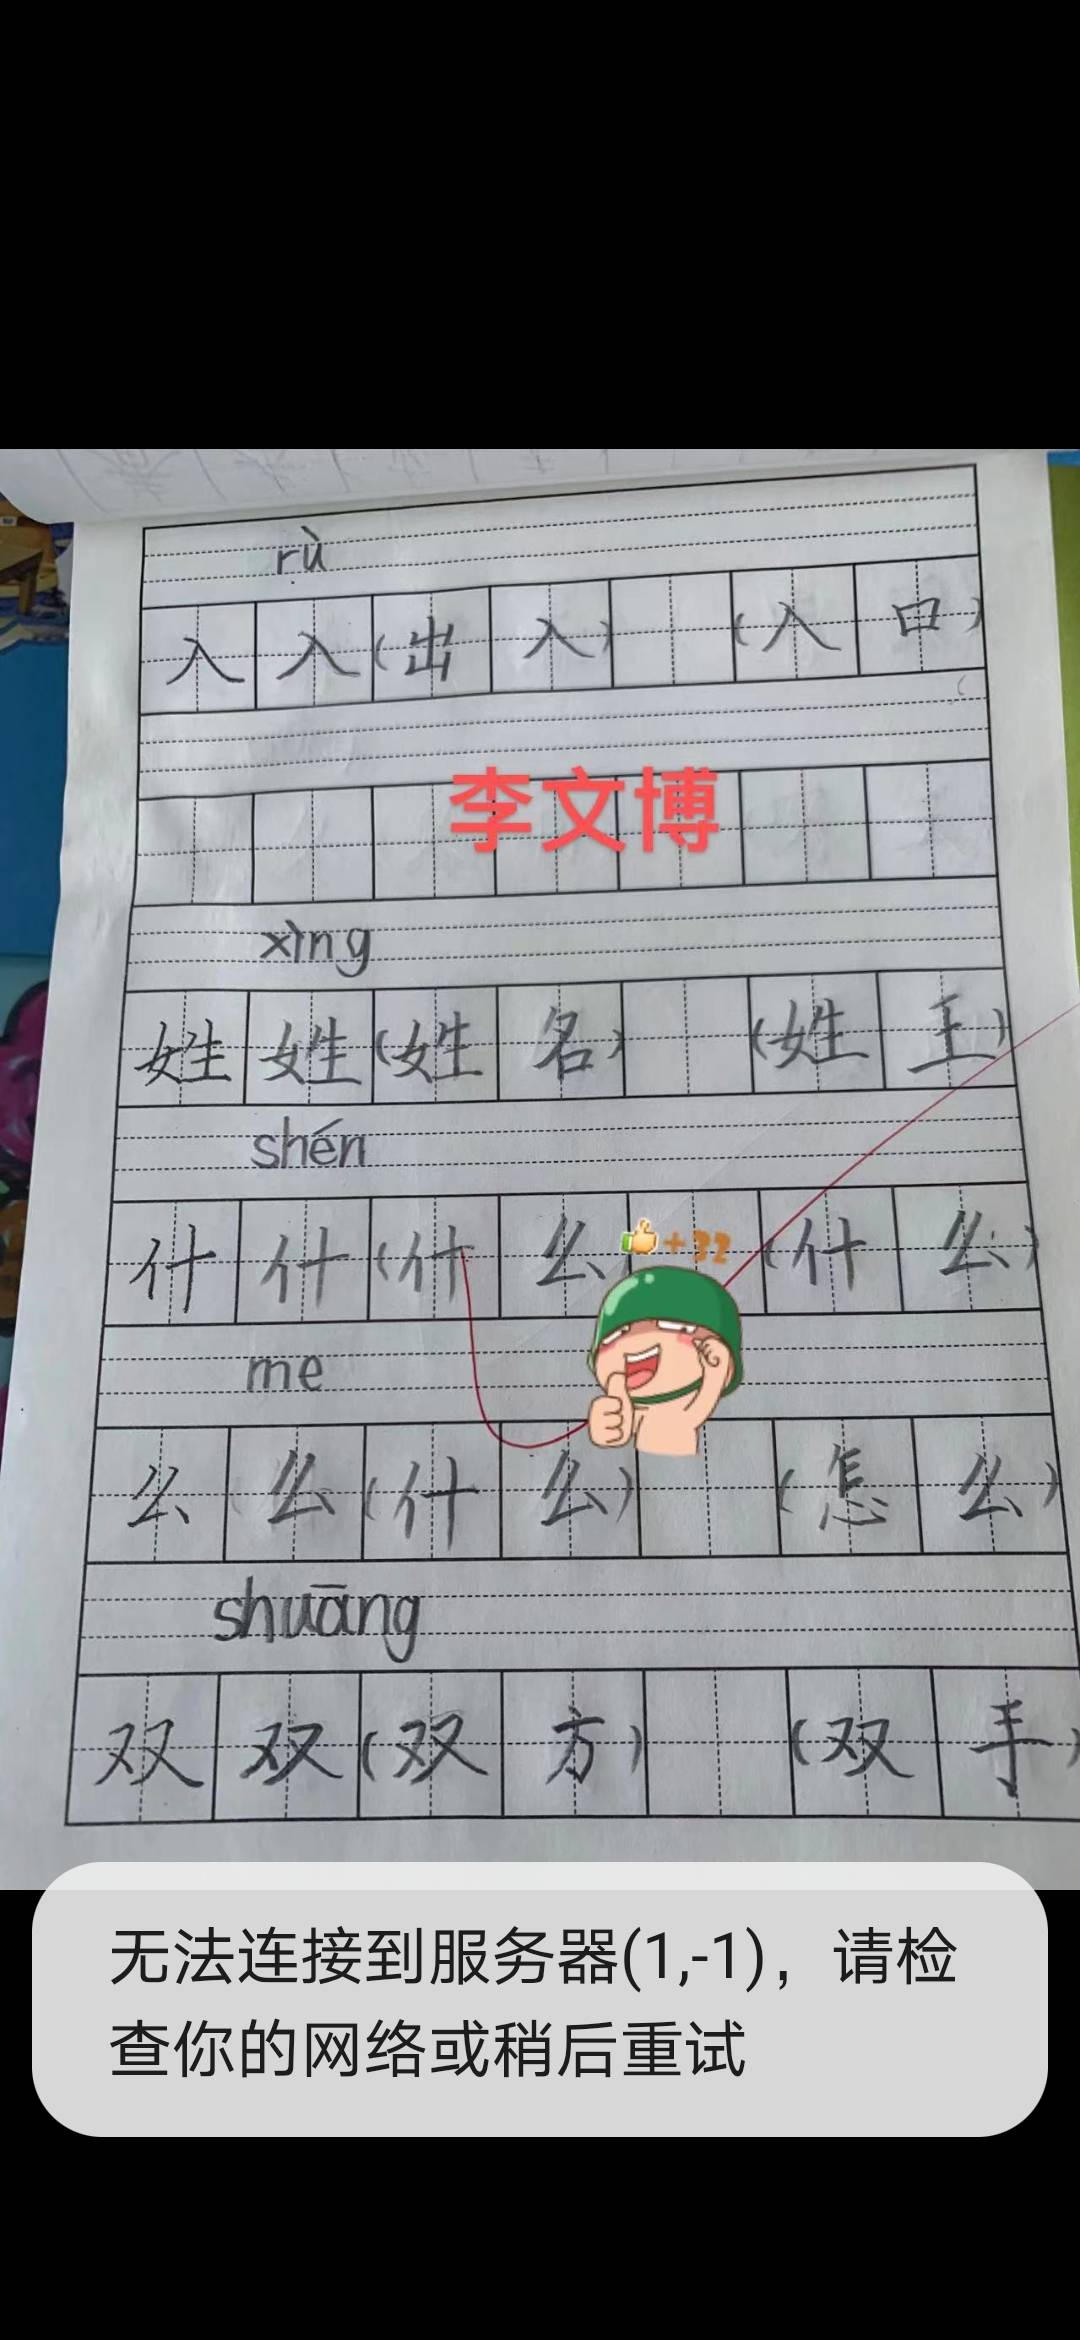 rù
入 入 (出 入) (入 口)
李文博
xìng
姓 姓 (姓 名) (姓 王)
shén
什 什 (什 么) (什 么)
+32
me
么 么 (什 么) (怎 么)
shuāng
双 双 (双 方) (双 手)
无法连接到服务器(1,-1)，请检
查你的网络或稍后重试